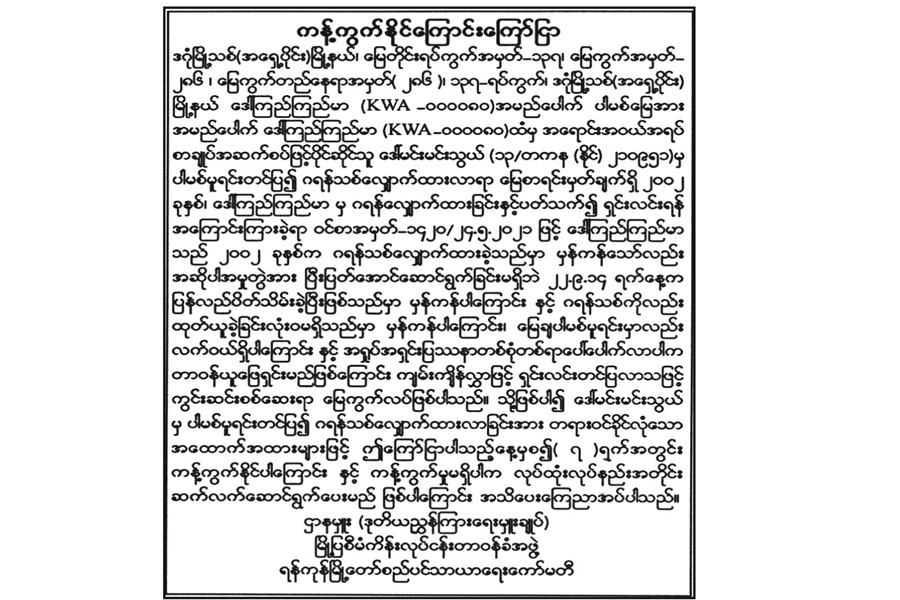 ကန့်ကွက်နိုင်ကြောင်းကြော်ငြာ
ဒဂုံမြို့သစ်(အရှေ့ပိုင်း)မြို့နယ်၊ မြေတိုင်းရပ်ကွက်အမှတ်–၁၃၇၊ မြေကွက်အမှတ်–
၂၈၆ ၊ မြေကွက်တည်နေရာအမှတ်( ၂၈၆ )၊ ၁၃၇–ရပ်ကွက်၊ ဒဂုံမြို့သစ်(အရှေ့ပိုင်း)
မြို့နယ် ဒေါ်ကြည်ကြည်မာ (KWA –၀၀၀၀၈၀)အမည်ပေါက် ပါမစ်မြေအား
အမည်ပေါက် ဒေါ်ကြည်ကြည်မာ (KWA–၀၀၀၀၈၀)ထံမှ အရောင်းအဝယ်အရပ်
စာချုပ်အဆက်စပ်ဖြင့်ပိုင်ဆိုင်သူ ဒေါ်မင်းမင်းသွယ် (၁၃/တကန (နိုင်) ၂၁၀၉၅၁)မှ
ပါမစ်မူရင်းတင်ပြ၍ ဂရန်သစ်လျှောက်ထားလာရာ မြေစာရင်းမှတ်ချက်ရှိ ၂၀၀၂
ခုနှစ်၊ ဒေါ်ကြည်ကြည်မာ မှ ဂရန်လျှောက်ထားခြင်းနှင့်ပတ်သက်၍ ရှင်းလင်းရန်
အကြောင်းကြားခဲ့ရာ ဝင်စာအမှတ်–၁၄၂၀/၂၄.၅.၂၀၂၁ ဖြင့် ဒေါ်ကြည်ကြည်မာ
သည် ၂၀၀၂ ခုနှစ်က ဂရန်သစ်လျှောက်ထားခဲ့သည်မှာ မှန်ကန်သော်လည်း
အဆိုပါအမှုတွဲအား ပြီးပြတ်အောင်ဆောင်ရွက်ခြင်းမရှိဘဲ ၂၂.၉.၁၄ ရက်နေ့က
ပြန်လည်ပိတ်သိမ်းခဲ့ပြီးဖြစ်သည်မှာ မှန်ကန်ပါကြောင်း နှင့် ဂရန်သစ်ကိုလည်း
ထုတ်ယူခဲ့ခြင်းလုံးဝမရှိသည်မှာ မှန်ကန်ပါကြောင်း၊ မြေချပါမစ်မူရင်းမှာလည်း
လက်ဝယ်ရှိပါကြောင်း နှင့် အရှုပ်အရှင်းပြဿနာတစ်စုံတစ်ရာပေါ်ပေါက်လာပါက
တာဝန်ယူဖြေရှင်းမည်ဖြစ်ကြောင်း ကျမ်းကျိန်လွှာဖြင့် ရှင်းလင်းတင်ပြလာသဖြင့်
ကွင်းဆင်းစစ်ဆေးရာ မြေကွက်လပ်ဖြစ်ပါသည်။ သို့ဖြစ်ပါ၍ ဒေါ်မင်းမင်းသွယ်
မှ ပါမစ်မူရင်းတင်ပြ၍ ဂရန်သစ်လျှောက်ထားလာခြင်းအား တရားဝင်ခိုင်လုံသော
အထောက်အထားများဖြင့် ဤကြော်ငြာပါသည့်နေ့မှစ၍( ၇ )ရက်အတွင်း
ကန့်ကွက်နိုင်ပါကြောင်း နှင့် ကန့်ကွက်မှုမရှိပါက လုပ်ထုံးလုပ်နည်းအတိုင်း
ဆက်လက်ဆောင်ရွက်ပေးမည် ဖြစ်ပါကြောင်း အသိပေးကြေညာအပ်ပါသည်။
ဌာနမှူး (ဒုတိယညွှန်ကြားရေးမှူးချုပ်)
မြို့ပြစီမံကိန်းလုပ်ငန်းတာဝန်ခံအဖွဲ့
ရန်ကုန်မြို့တော်စည်ပင်သာယာရေးကော်မတီ